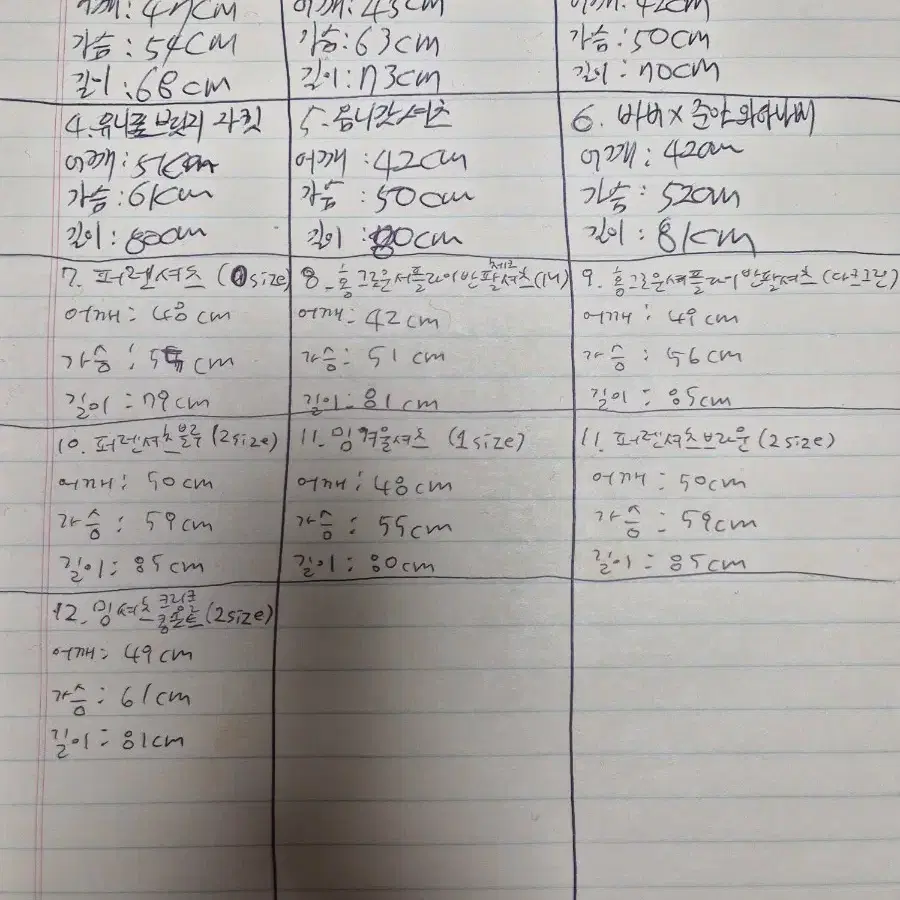 어깨: 47cm
가슴: 54cm
길이: 68cm
어깨: 45cm
가슴: 63cm
길이: 73cm
어깨: 42cm
가슴: 50cm
길이: 70cm
4. 유니폼브릿지 자켓
어깨: 51cm
가슴: 61cm
길이: 80cm
5. 옴니갓셔츠
어깨: 42cm
가슴: 50cm
길이: 80cm
6. 바버 x 준야와타나베
어깨: 42cm
가슴: 52cm
길이: 81cm
7. 퍼렌셔츠 (0size)
어깨: 48cm
가슴: cm
길이: 79cm
8. 홍그로운서플라이반팔셔츠
어깨: 42cm
가슴: 51cm
길이: 81cm
9. 홍그로운서플라이반팔셔츠 (다크그린)
어깨: 49cm
가슴: 56cm
길이: 85cm
10. 퍼렌셔츠블루 (2size)
어깨: 50cm
가슴: 59cm
길이: 85cm
11. 밍겨울셔츠 (1size)
어깨: 48cm
가슴: 55cm
길이: 80cm
11. 퍼렌셔츠브라운 (2size)
어깨: 50cm
가슴: 59cm
길이: 85cm
12. 밍셔츠 (2size)
어깨: 49cm
가슴: 61cm
길이: 81cm